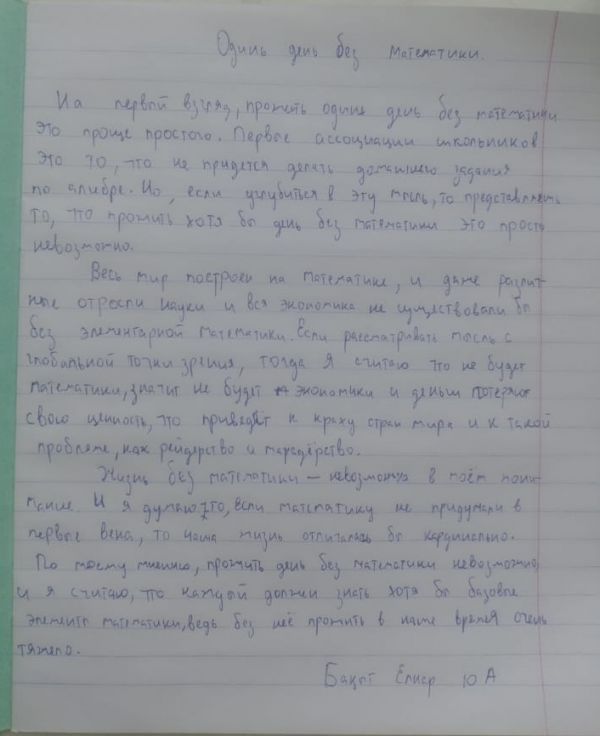 Один день без математики.
На первой взгляд, прожить один день без математики
это проще простого. Первые ассоциации школьников
это то, что не придется делать домашнего задания
по алгебре. Но, если углубиться в эту мысль, то представлять
то, что прожить хотя бы день без математики это просто
невозможно.
Весь мир построен на математике, и даже различ-
ные отросли науки и вся экономика не существовали бы
без элементарной математики. Если рассматривать мысль с
глобальной точки зрения, тогда я считаю что не будет
математики, значит не будет экономики и деньги потеряют
свою ценность, что приведёт к краху стран мира и к такой
проблеме, как рейдерство и мародёрство.
Жизнь без математики – невозможна в моём пони-
мание. И я думаю, что, если математику не придумали в
первые века, то наша жизнь отличалась бы кардинально.
По моему мнению, прожить день без математики невозможно,
и я считаю, что каждый должен знать хотя бы базовые
элементы математики, ведь без неё прожить в наше время очень
тяжело.
10 А